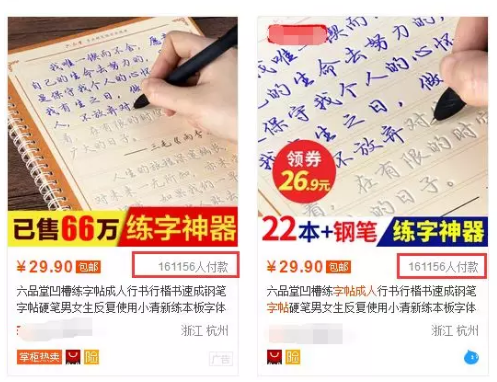 我唯一锲而不舍，愿
自己的生命去努力的，
是保守我个人的心怀
我有生之日，做
人，不放弃对
在有限的时
广大的日子。
已售66万
练字神器
¥29.90 包邮
161156人付款
六品堂凹槽练字帖成人行书行楷书速成钢笔
字帖硬笔男女生反复使用小清新练本板字体
浙江 杭州
掌柜热卖
险
广告
唯一锲而
的生命去努力的，
保守我个人的心怀
生之日，做
不放弃对
在有限的时
的日子。
领券
26.9元
22本+钢笔
练字神器
¥29.90 包邮
161156人付款
六品堂凹槽练字帖成人行书行楷书速成钢笔
字帖硬笔男女生反复使用小清新练本板字体
浙江 杭州
险